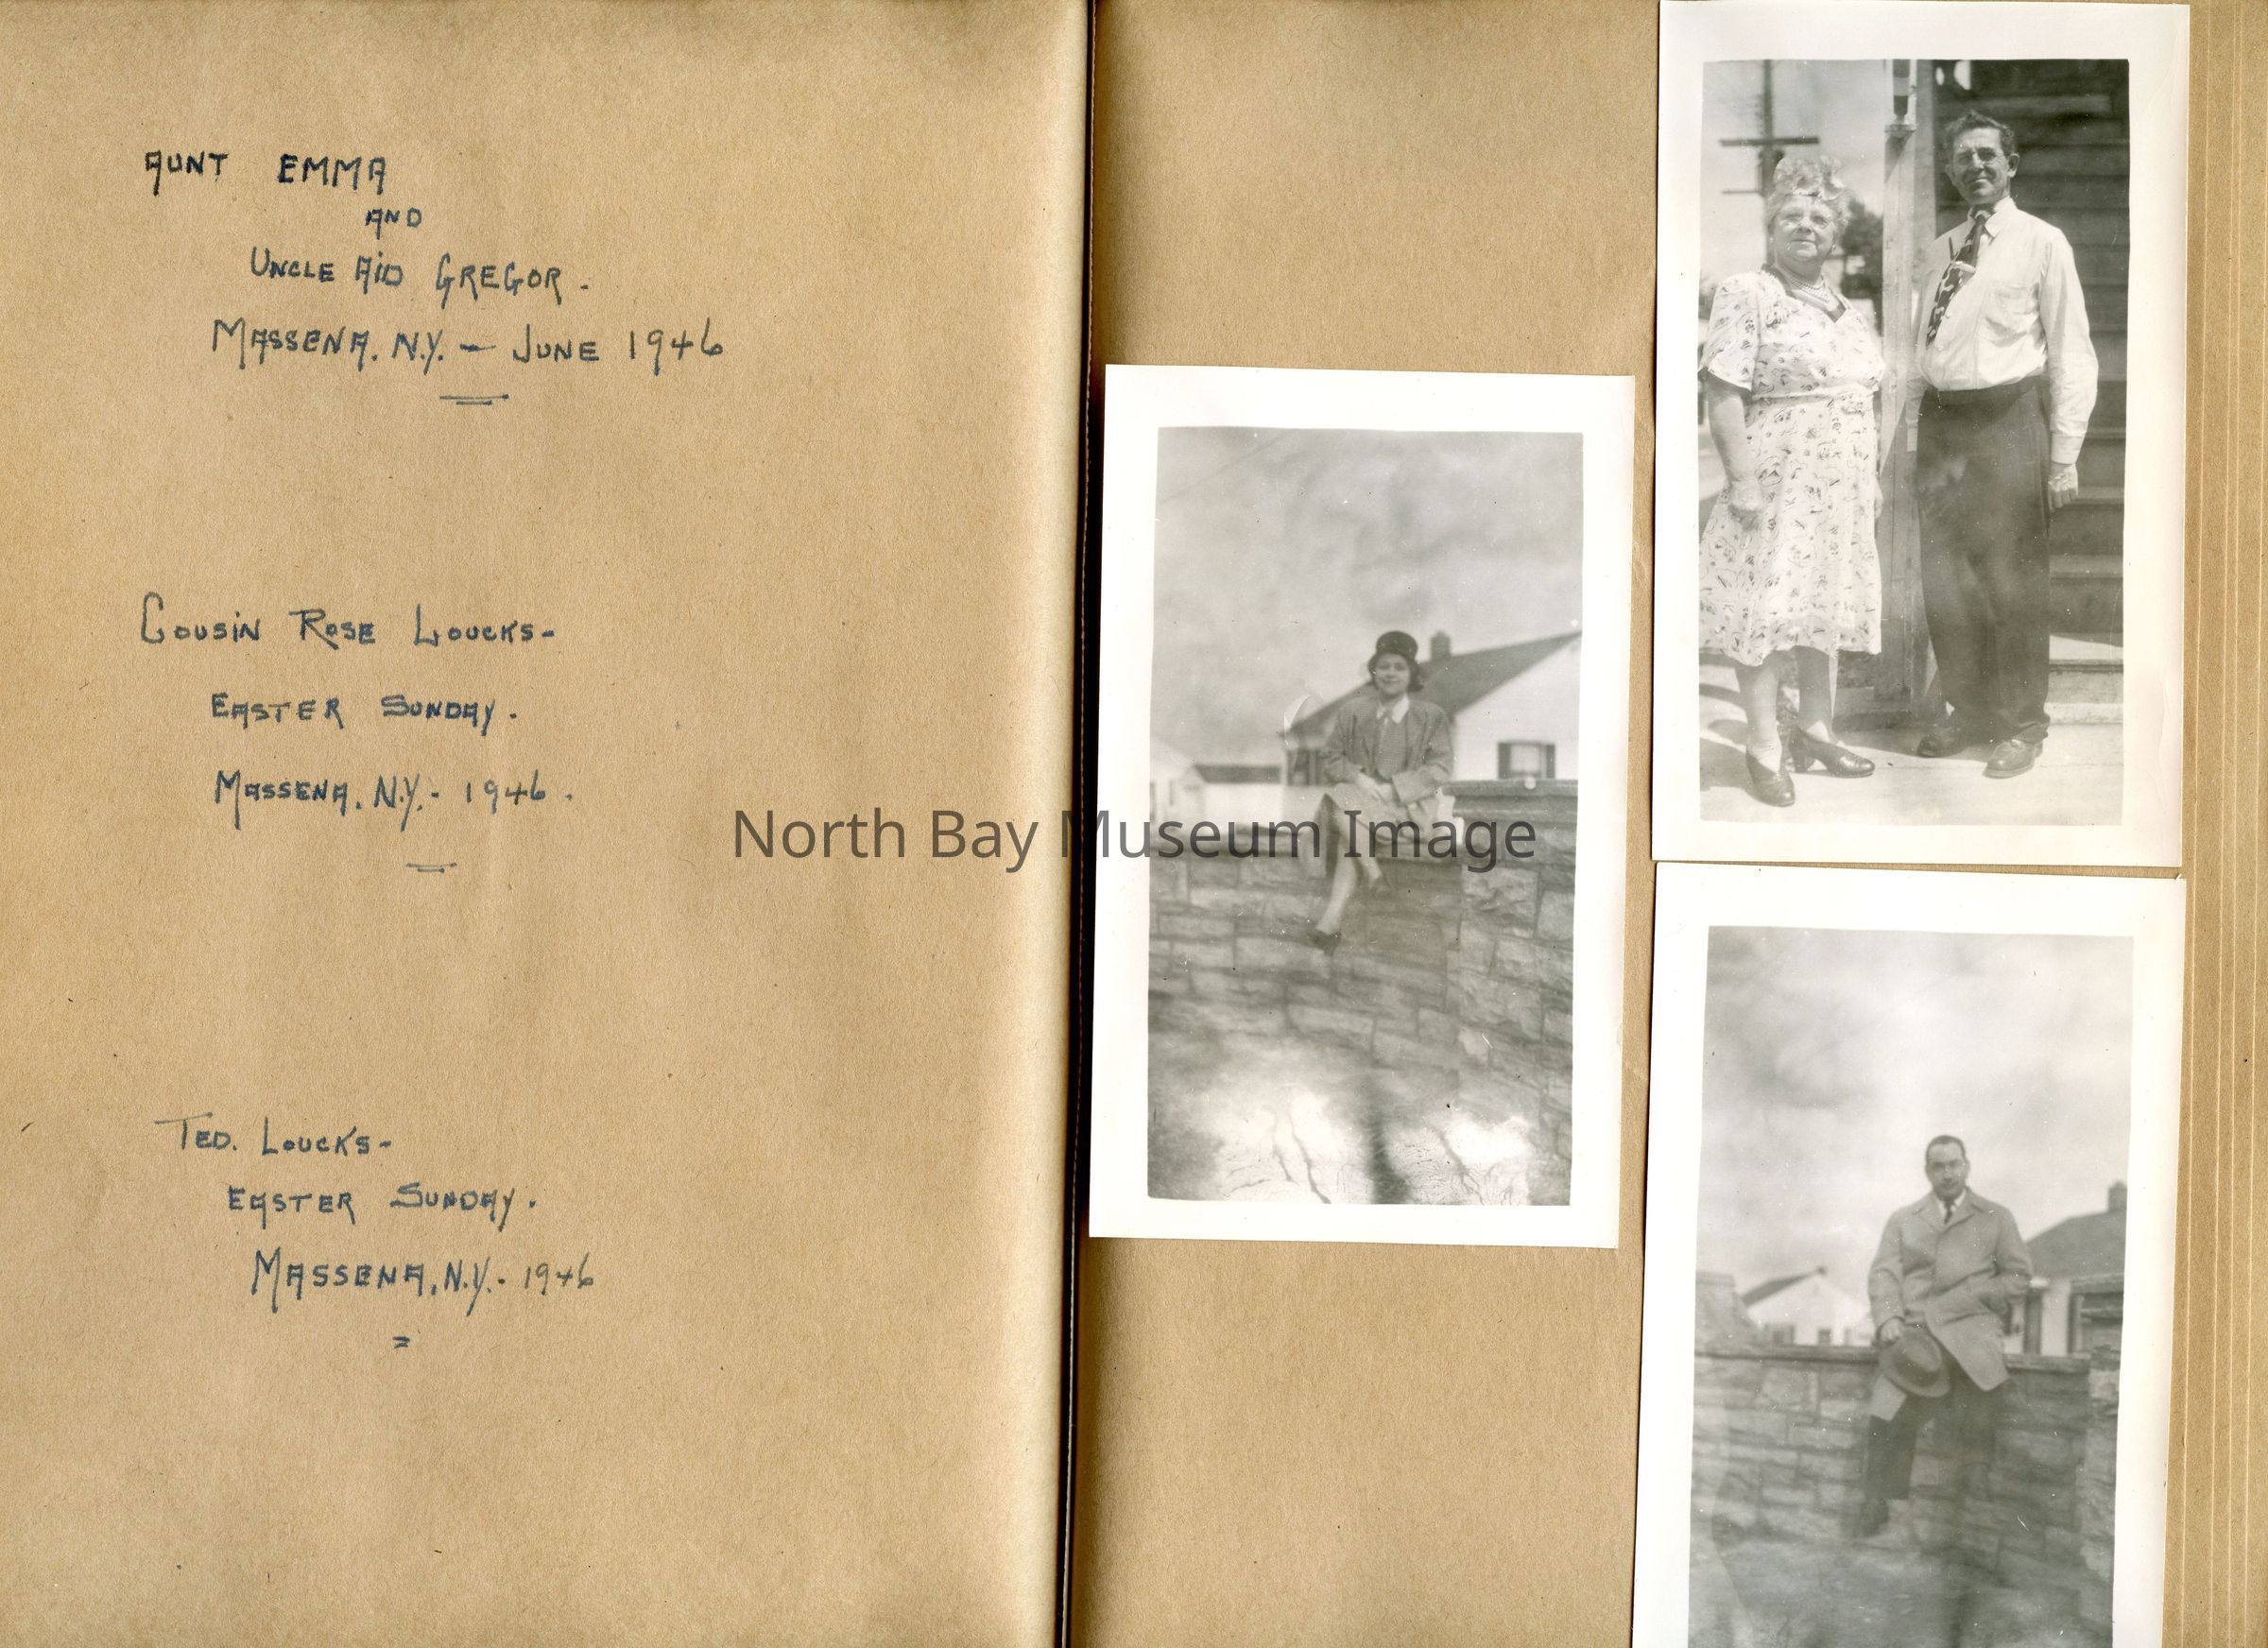 AUNT EMMA
AND
UNCLE AID GREGOR.
MASSENA, N.Y. - JUNE 1946
COUSIN ROSE LOUCKS-
EASTER SUNDAY.
MASSENA, N.Y. - 1946.
TED. LOUCKS-
EASTER SUNDAY.
MASSENA, N.Y. - 1946
North Bay Museum Image